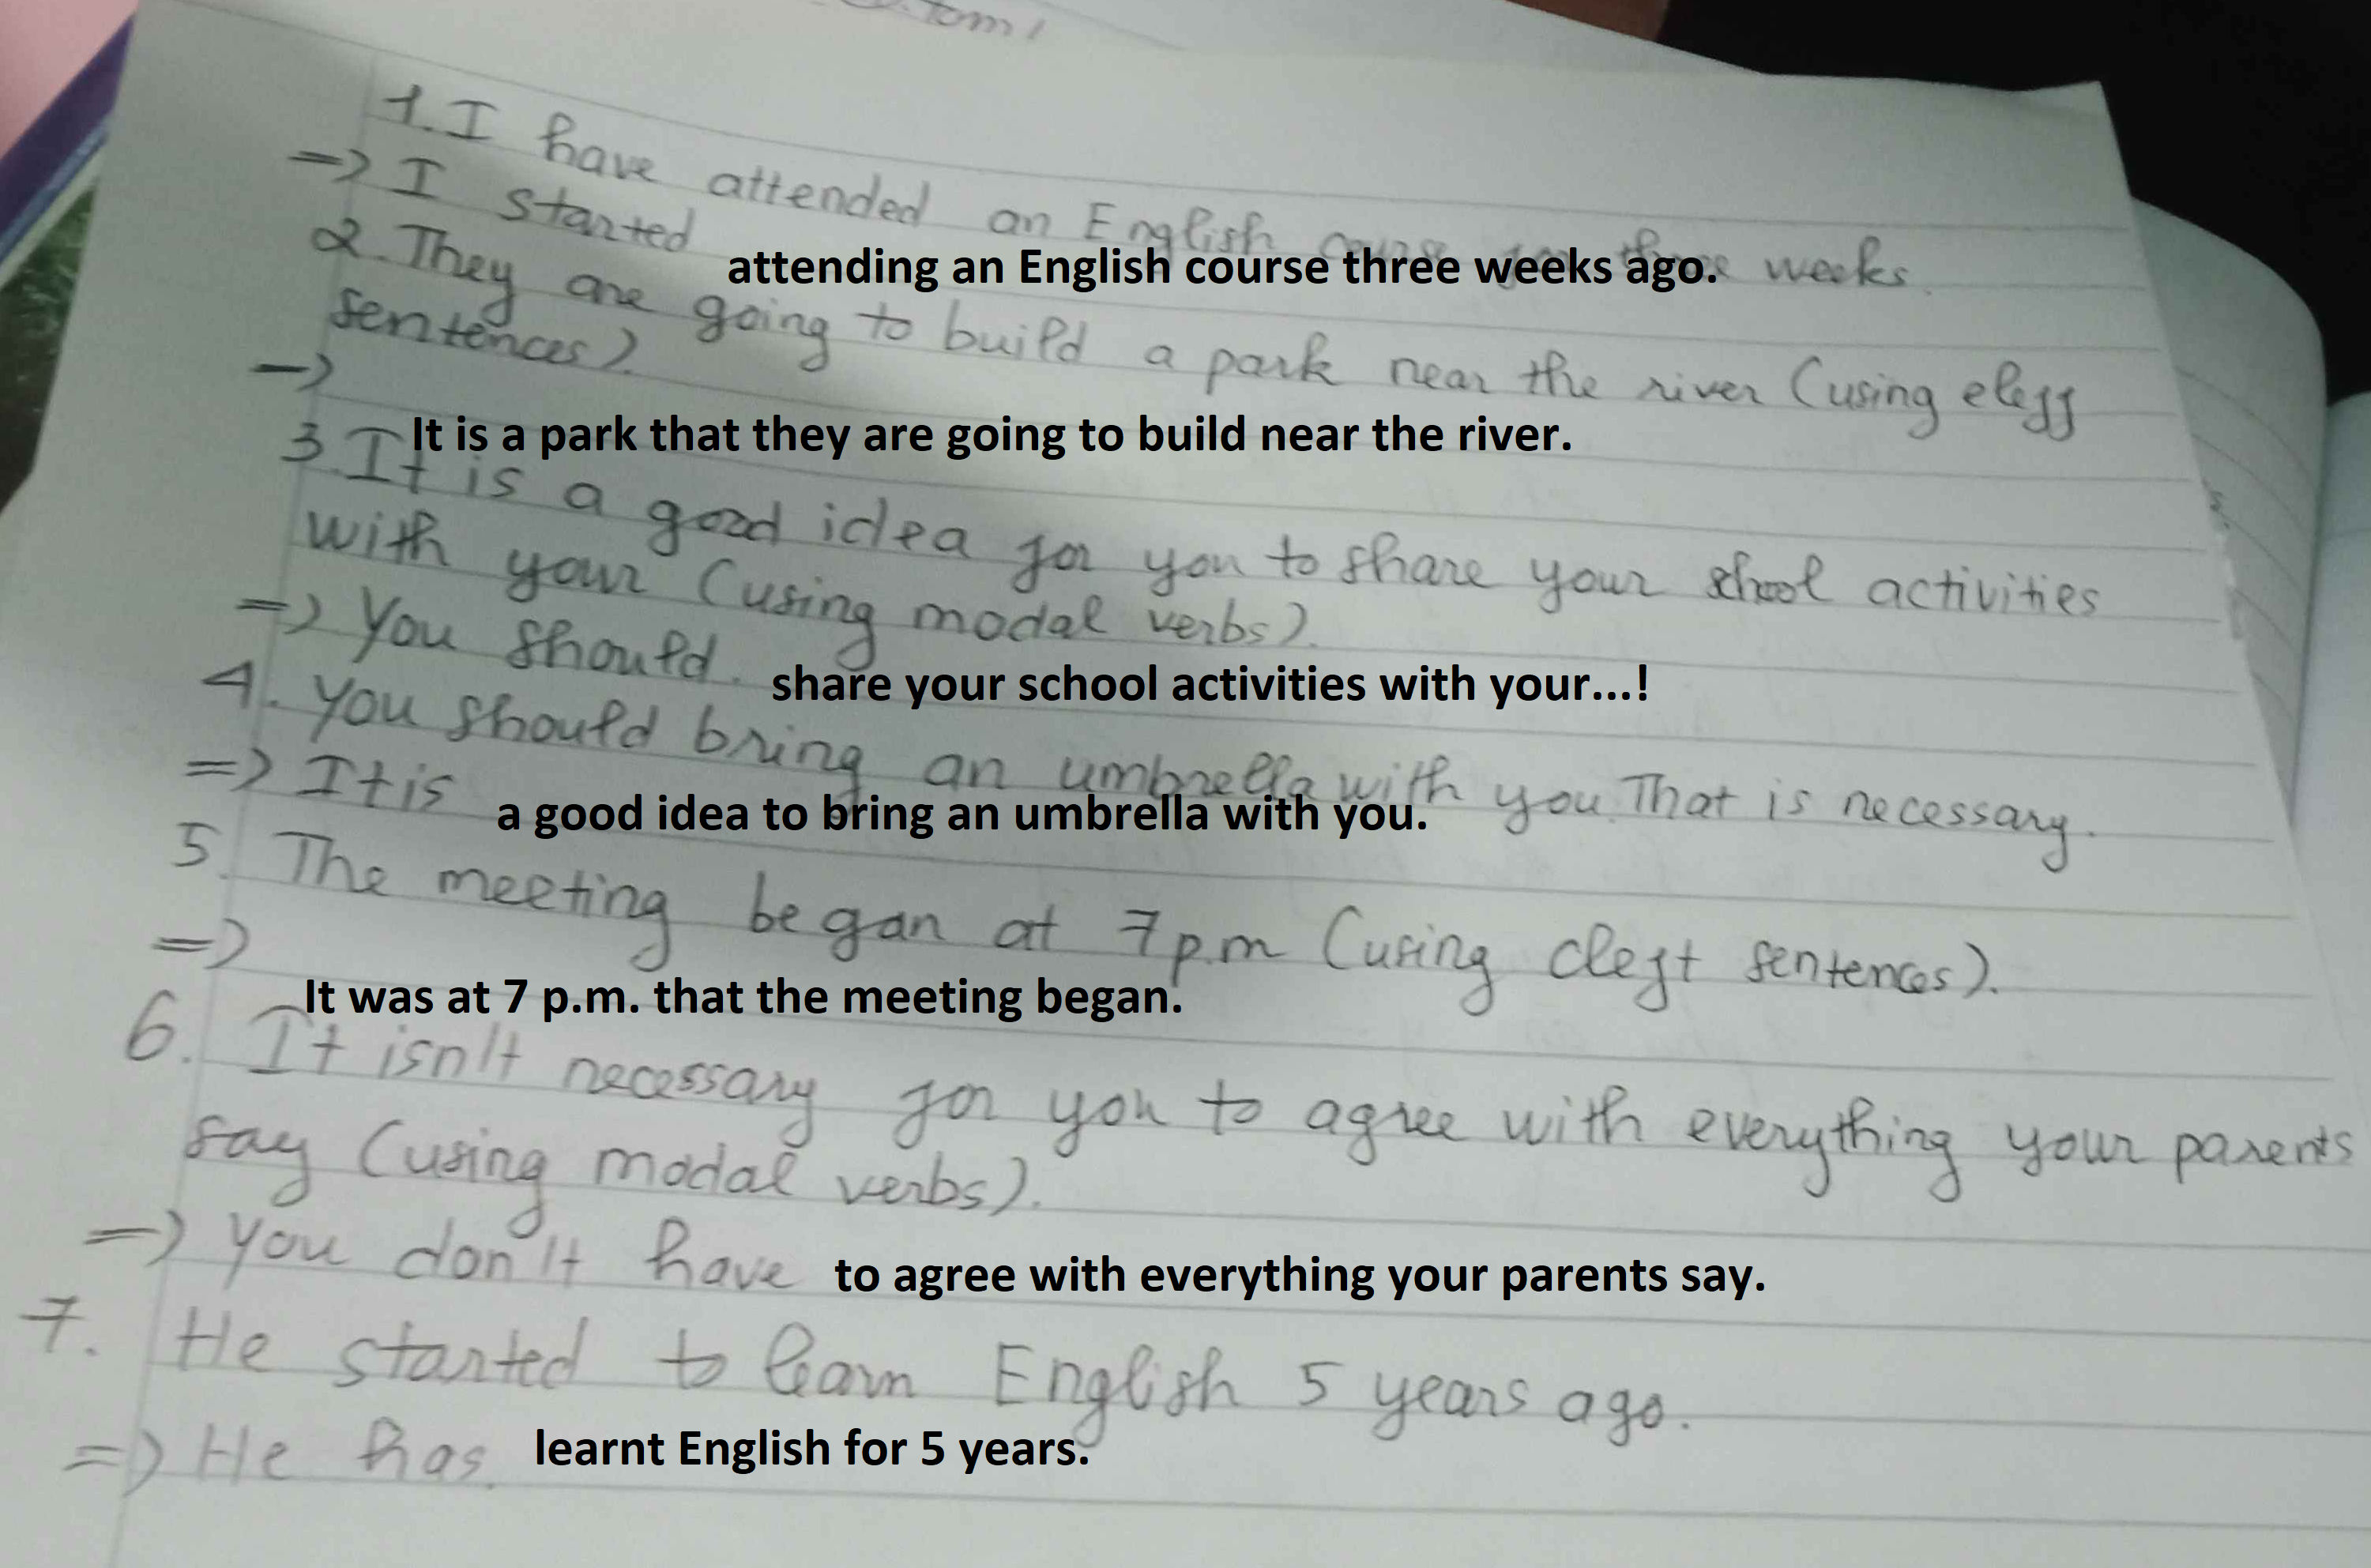 tom
1. I have attended an English course for three weeks.
=> I started attending an English course three weeks ago.
2. They are going to build a park near the river (using eleff
sentences).
->
It is a park that they are going to build near the river.
3 It is a good idea for you to share your school activities
with your (using modal verbs).
=> You should. share your school activities with your...!
4. you should bring an umbrella with you. That is necessary.
=> It is a good idea to bring an umbrella with you.
5. The meeting began at 7 p.m (using cleft sentences).
=>
It was at 7 p.m. that the meeting began.
6. It isn't necessary for you to agree with everything your parents
say (using modal verbs).
=> you don't have to agree with everything your parents say.
7. He started to learn English 5 years ago.
=> He has learnt English for 5 years.